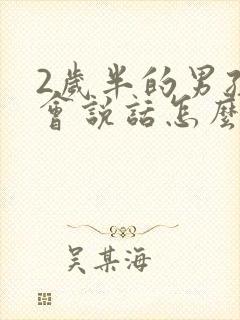 2歲半的男孩
會說話怎麼
吳某海